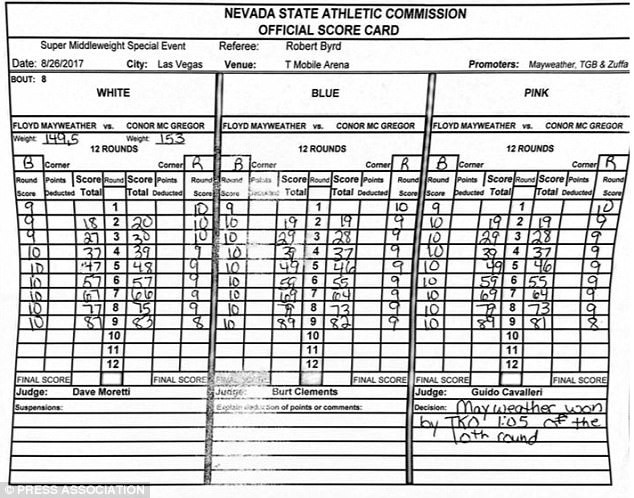 NEVADA STATE ATHLETIC COMMISSION
OFFICIAL SCORE CARD
Super Middleweight Special Event Referee: Robert Byrd
Date: 8/26/2017 City: Las Vegas Venue: T Mobile Arena Promoters: Mayweather, TGB & Zuffa
BOUT: 8
WHITE BLUE PINK
FLOYD MAYWEATHER vs. CONOR MC GREGOR FLOYD MAYWEATHER vs. CONOR MC GREGOR FLOYD MAYWEATHER vs. CONOR MC GREGOR
Weight: 149.5 Weight: 153
12 ROUNDS 12 ROUNDS 12 ROUNDS
B Corner Corner R B Corner Corner R B Corner Corner R
Round Points Score Round Score Points Round Round Points Score Round Score Points Round Round Points Score Round Score Points Round
Score Deducted Total Total Deducted Score Score Deducted Total Total Deducted Score Score Deducted Total Total Deducted Score
9 1 10 9 1 10 9 1 10
9 18 2 20 10 10 19 2 19 9 10 19 2 19 9
9 27 3 30 10 10 29 3 28 9 10 29 3 28 9
10 37 4 39 9 10 39 4 37 9 10 39 4 37 9
10 47 5 48 9 10 49 5 46 9 10 49 5 46 9
10 57 6 57 9 10 59 6 55 9 10 59 6 55 9
10 67 7 66 9 10 69 7 64 9 10 69 7 64 9
10 77 8 75 9 10 79 8 73 9 10 79 8 73 9
10 87 9 83 8 10 89 9 82 9 10 89 9 81 8
10 10 10
11 11 11
12 12 12
FINAL SCORE FINAL SCORE FINAL SCORE FINAL SCORE FINAL SCORE FINAL SCORE
Judge: Dave Moretti Judge: Burt Clements Judge: Guido Cavalleri
Suspensions: Explain deduction of points or comments: Decision: Mayweather won
by TKO 1:05 of the
10th round
© PRESS ASSOCIATION